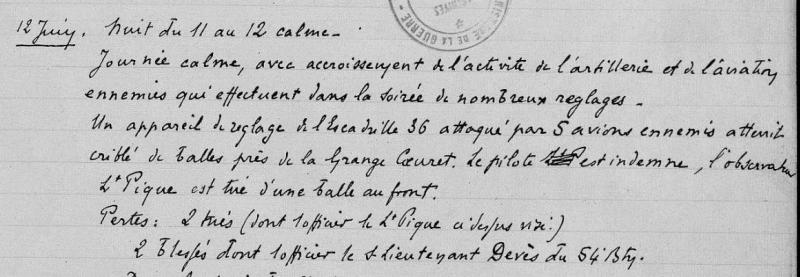 12 Juin. Nuit du 11 au 12 calme -
Journée calme, avec accroissement de l'activité de l'artillerie et de l'aviation
ennemies qui effectuent dans la soirée de nombreux reglages -
Un appareil de reglage de l'Escadrille 36 attaqué par 5 avions ennemis atterrit
criblé de balles près de la Grange Cœuret. Le pilote est indemne, l'observateur
Lt Pique est tué d'une balle au front.
Pertes : 2 tués (dont l'officier le Lt Pique ci dessus visé.)
2 blessés dont l'officier le S Lieutenant Devès du 54e Btn.
DE LA GUERRE
ARCHIVES